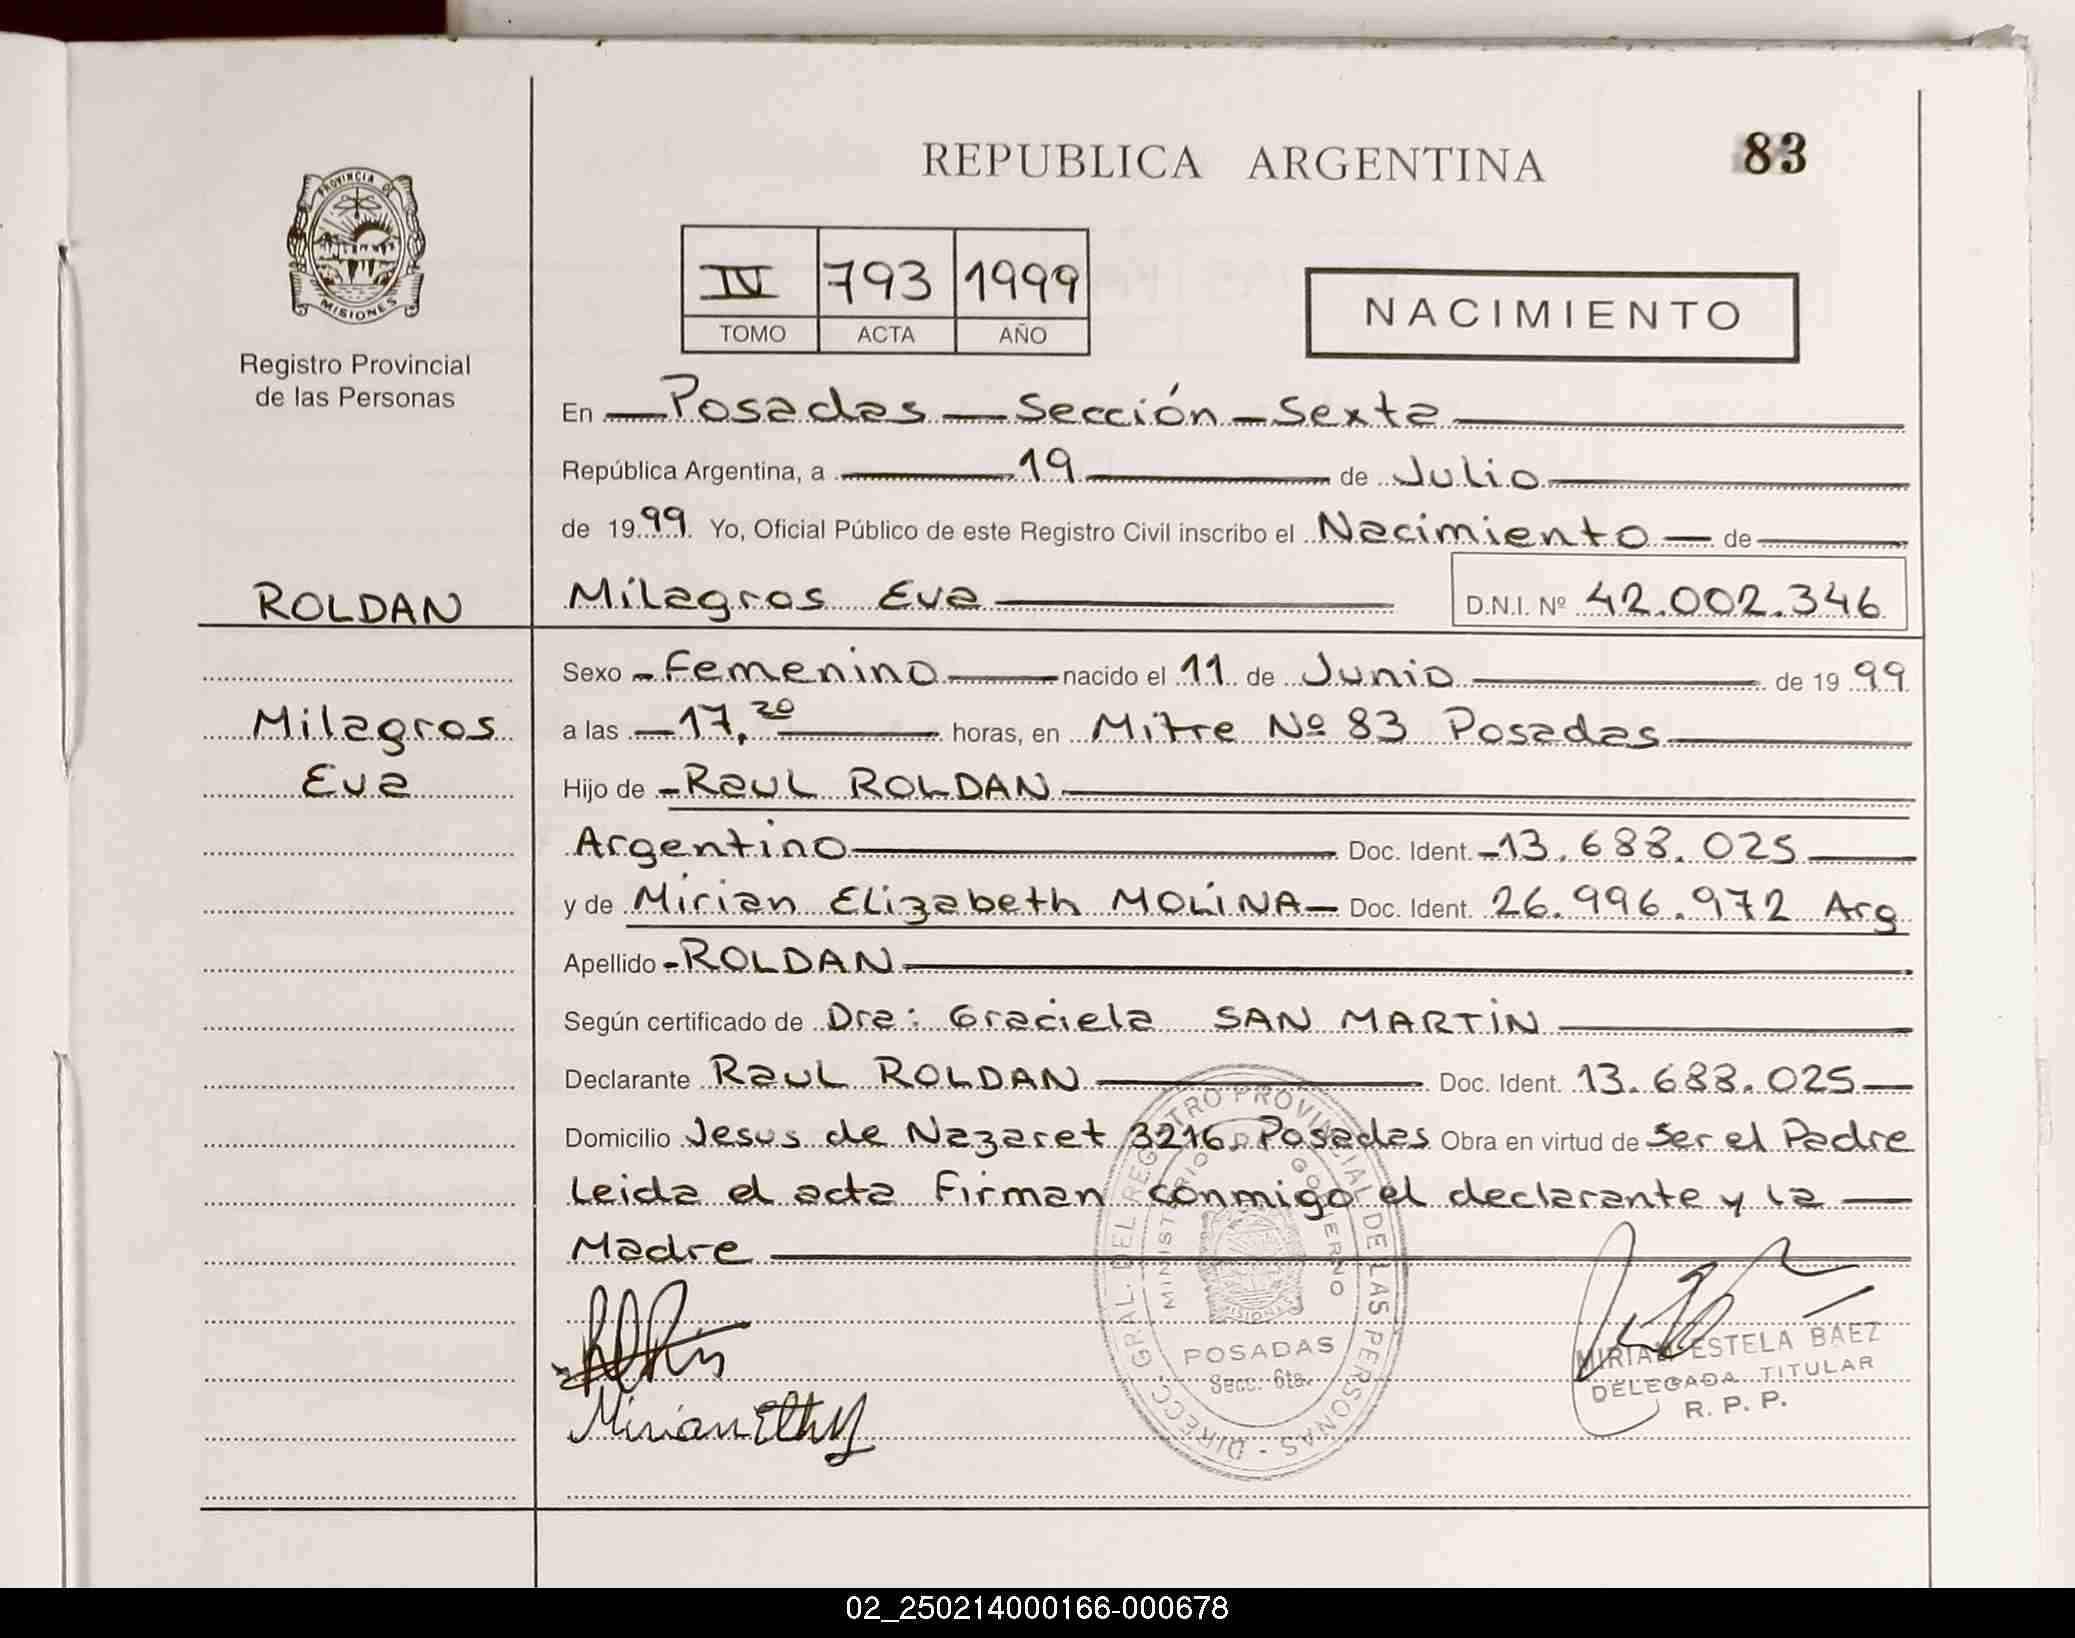 REPUBLICA ARGENTINA
83
PROVINCIA DE
MISIONES
Registro Provincial
de las Personas
IV 793 1999
TOMO ACTA AÑO
NACIMIENTO
En Posadas - Sección - Sexta
República Argentina, a 19 de Julio
de 1999. Yo, Oficial Público de este Registro Civil inscribo el Nacimiento de
ROLDAN
Milagros Eva D.N.I. Nº 42.002.346
Milagros
Eva
Sexo Femenino nacido el 11 de Junio de 1999
a las 17,20 horas, en Mitre Nº 83 Posadas
Hijo de Raul ROLDAN
Argentino Doc. Ident. 13.688.025
y de Mirian Elizabeth MOLINA Doc. Ident. 26.996.972 Arg
Apellido ROLDAN
Según certificado de Dra: Graciela SAN MARTIN
Declarante Raul ROLDAN Doc. Ident. 13.688.025
Domicilio Jesus de Nazaret 3216. Posadas Obra en virtud de Ser el Padre
Leida el acta Firman conmigo el declarante y la
Madre
DIRECC. GRAL. DEL REGISTRO PROVINCIAL DE LAS PERSONAS
MINISTERIO DE GOBIERNO
MISIONES
POSADAS
Secc. 6ta.
MIRIAM ESTELA BAEZ
DELEGADA TITULAR
R. P. P.
02_250214000166-000678